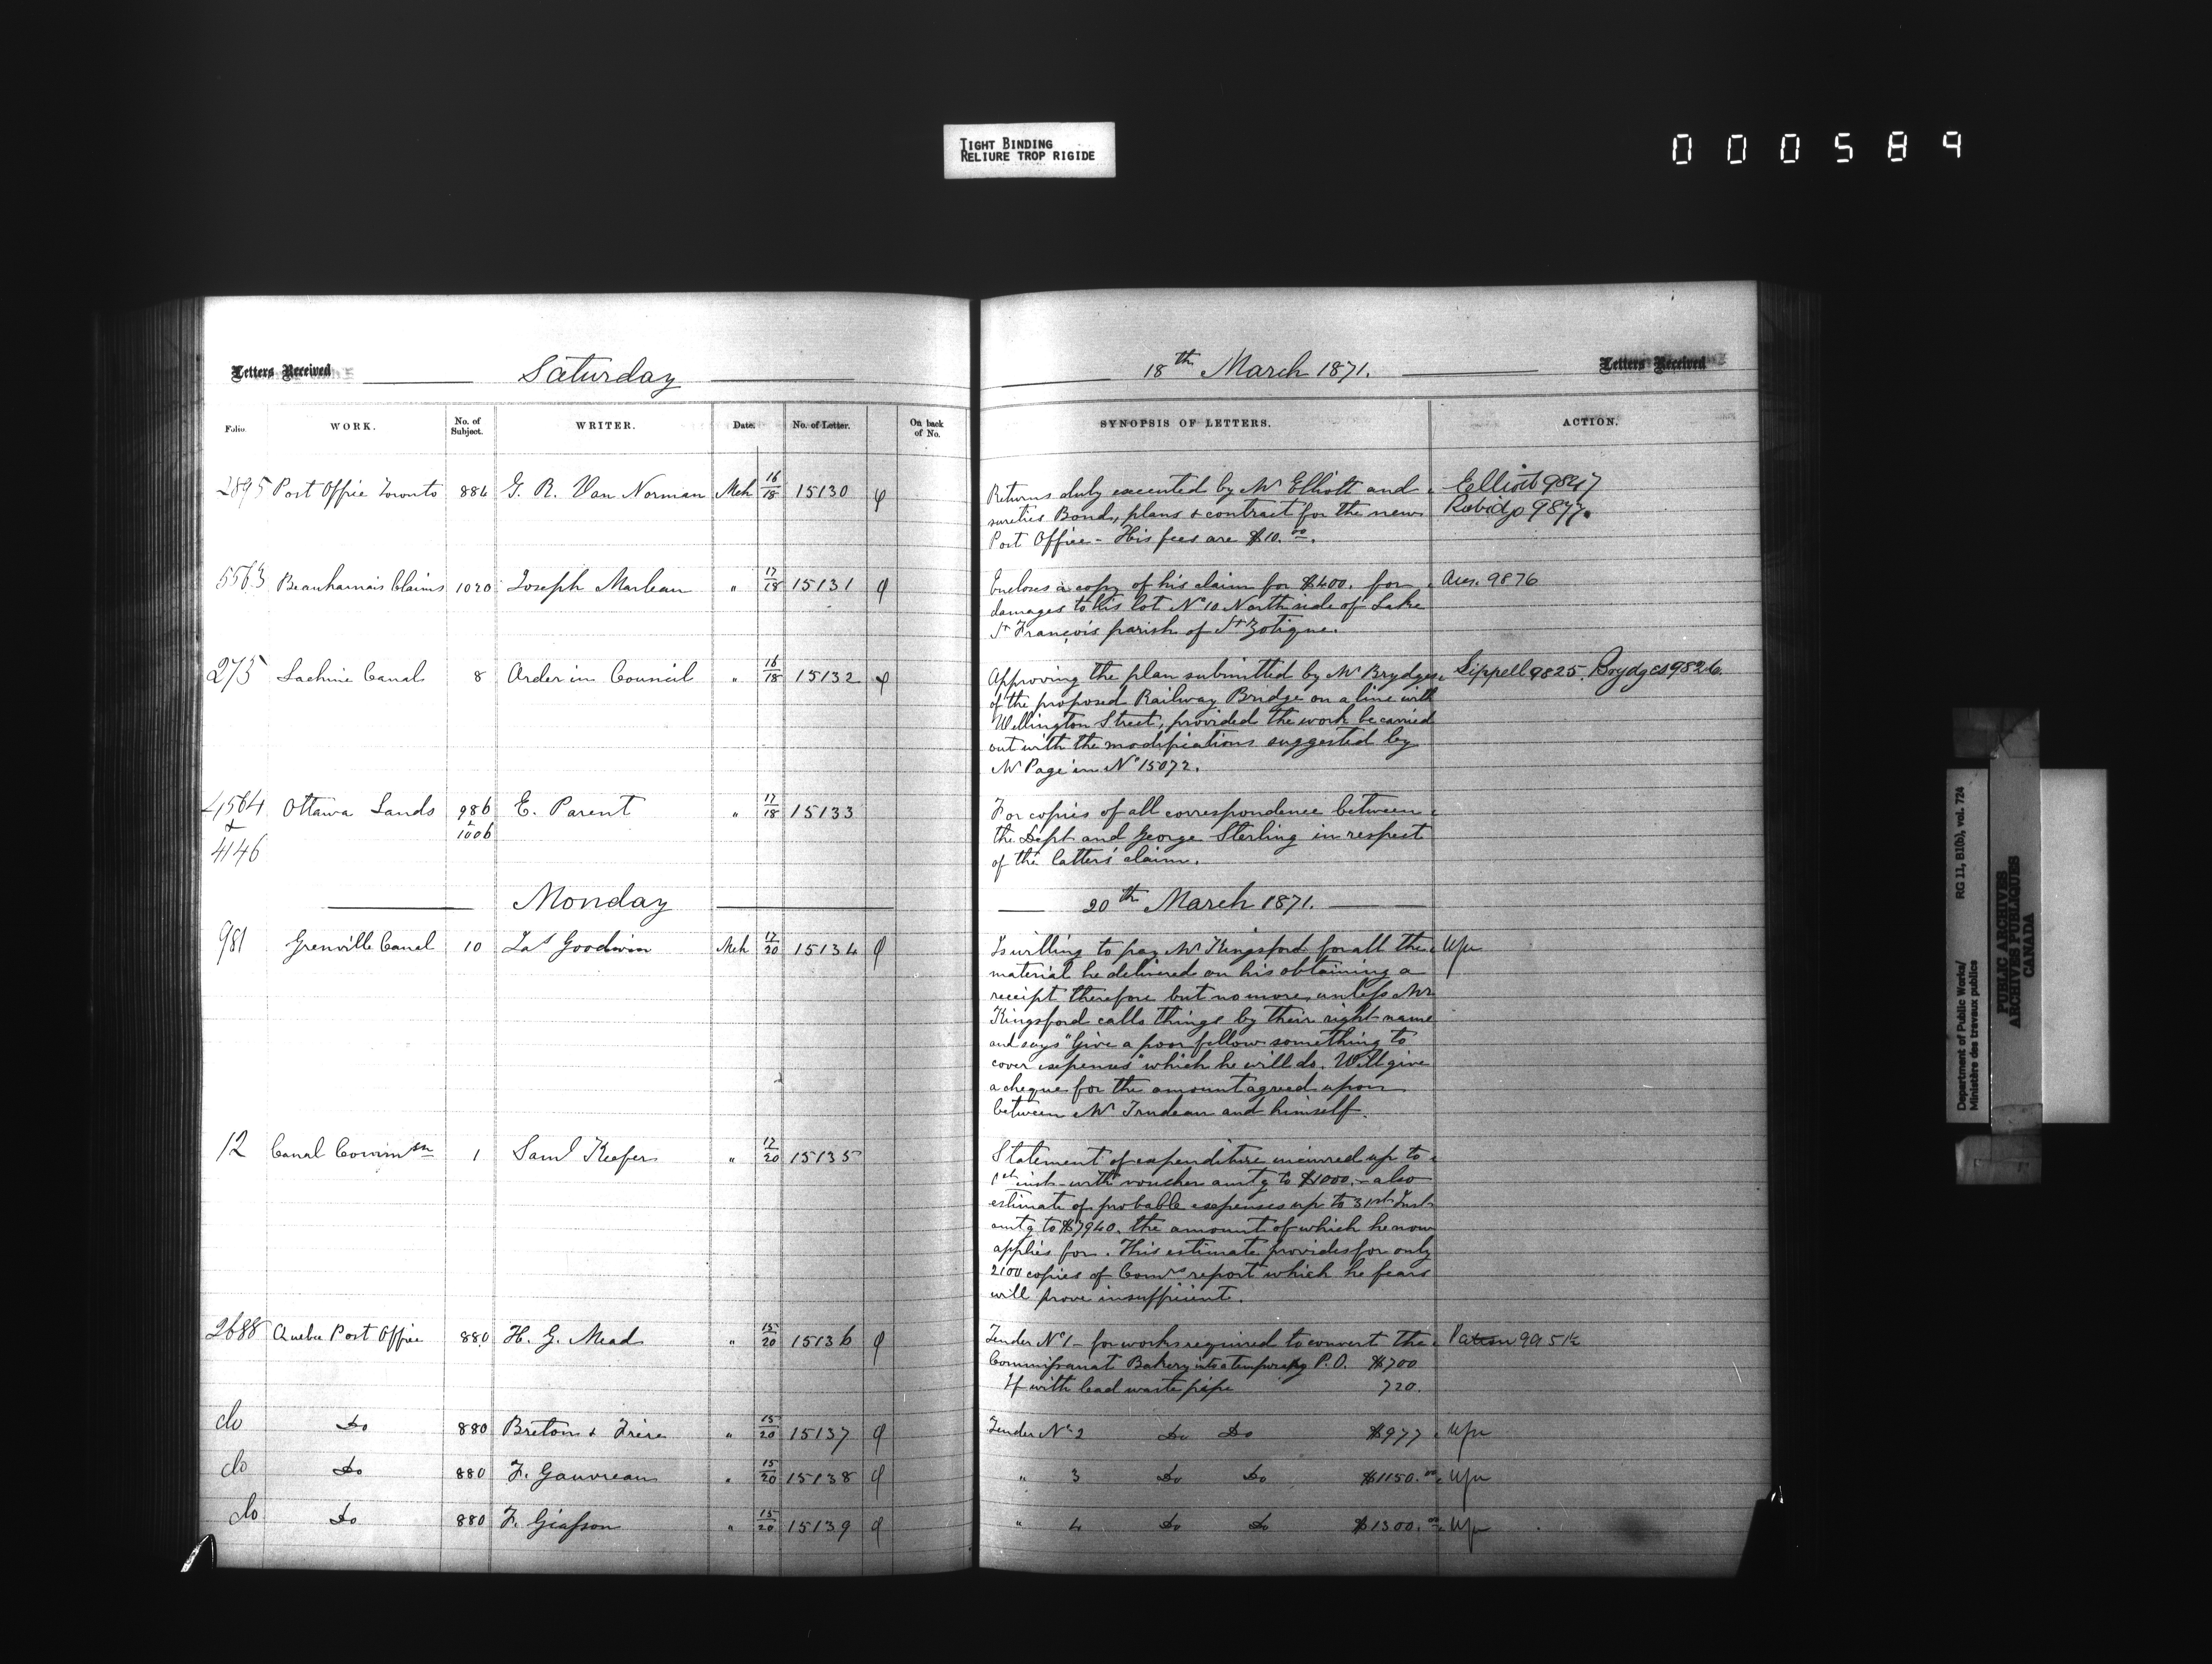 TIGHT BINDING
RELIURE TROP RIGIDE
000589
Letters Received
Saturday
18th March 1871.
Letters Received
Folio.
WORK.
No. of Subject.
WRITER.
Date.
No. of Letter.
On back of No.
SYNOPSIS OF LETTERS.
ACTION.
2895 Post Office Toronto 884 G. R. Van Norman Mch 16/18 15130
Returns duly executed by Mr Elliott and
sureties Bond, plans & contract for the new
Post Office - His fees are $10.00.
Elliott 9847
Rubidge 9877.
5563 Beauharnais Claims 1020 Joseph Marleau " 17/18 15131
Encloses a copy of his claim for $400. for
damages to his lot No 10 North side of Lake
St François parish of St Zotique.
9876
275 Lachine Canal 8 Order in Council " 16/18 15132
Approving the plan submitted by Mr Brydges
of the proposed Railway Bridge on a line with
Wellington Street, provided the work be carried
out with the modifications suggested by
Mr Page in No 15072.
Sippell 9825 Brydges 9826
4564 & 4146 Ottawa Lands 986 & 1006 E. Parent " 17/18 15133
For copies of all correspondence between
the Dept and George Sterling in respect
of the latters' claim.
Monday
20th March 1871.
981 Grenville Canal 10 Jas Goodwin Mch 17/20 15134
Is willing to pay Mr Kingsford for all the
material he delivered on his obtaining a
receipt therefore but no more, unless Mr
Kingsford calls things by their right name
and says "Give a poor fellow something to
cover expenses" which he will do. Will give
a cheque for the amount agreed upon
between Mr Trudeau and himself.
12 Canal Commsn 1 Saml Keefer " 17/20 15135
Statement of expenditure incurred up to
1st inst - with voucher amtg to $1000. - also
estimate of probable expenses up to 31st Inst
amtg to $7940. the amount of which he now
applies for. This estimate provides for only
2100 copies of Comrs report which he fears
will prove insufficient.
2688 Quebec Post Office 880 H. G. Mead " 15/20 15136
Tender No 1 - for works required to convert the
Commissariat Bakery into a temporary P.O. $700
If with lead waste pipe 720.
do Do 880 Breton & Frère " 15/20 15137
Tender No 2 Do Do $977
do Do 880 F. Gauvreau " 15/20 15138
" 3 Do Do $1150.00
do Do 880 F. Giasson " 15/20 15139
" 4 Do Do $1300.00
Department of Public Works/
Ministère des travaux publics
RG 11, B1(b), vol. 724
PUBLIC ARCHIVES
ARCHIVES PUBLIQUES
CANADA